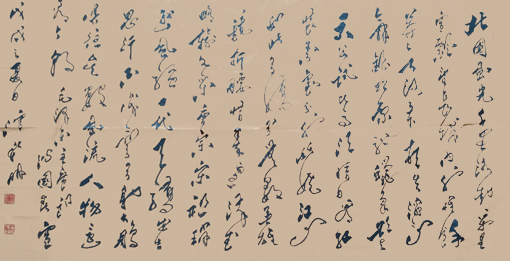 北国风光千里冰封万里
雪飘望长城内外惟余
莽莽大河上下顿失滔滔山
舞银蛇原驰蜡象欲与
天公试比高须晴日看红
装素裹分外妖娆江山
如此多娇引无数英雄
竞折腰惜秦皇汉武
略输文采唐宗宋祖稍
逊风骚一代天骄成吉
思汗只识弯弓射大雕
俱往矣数风流人物还
看今朝 毛泽东主席词
沁园春雪
戊戌之夏日